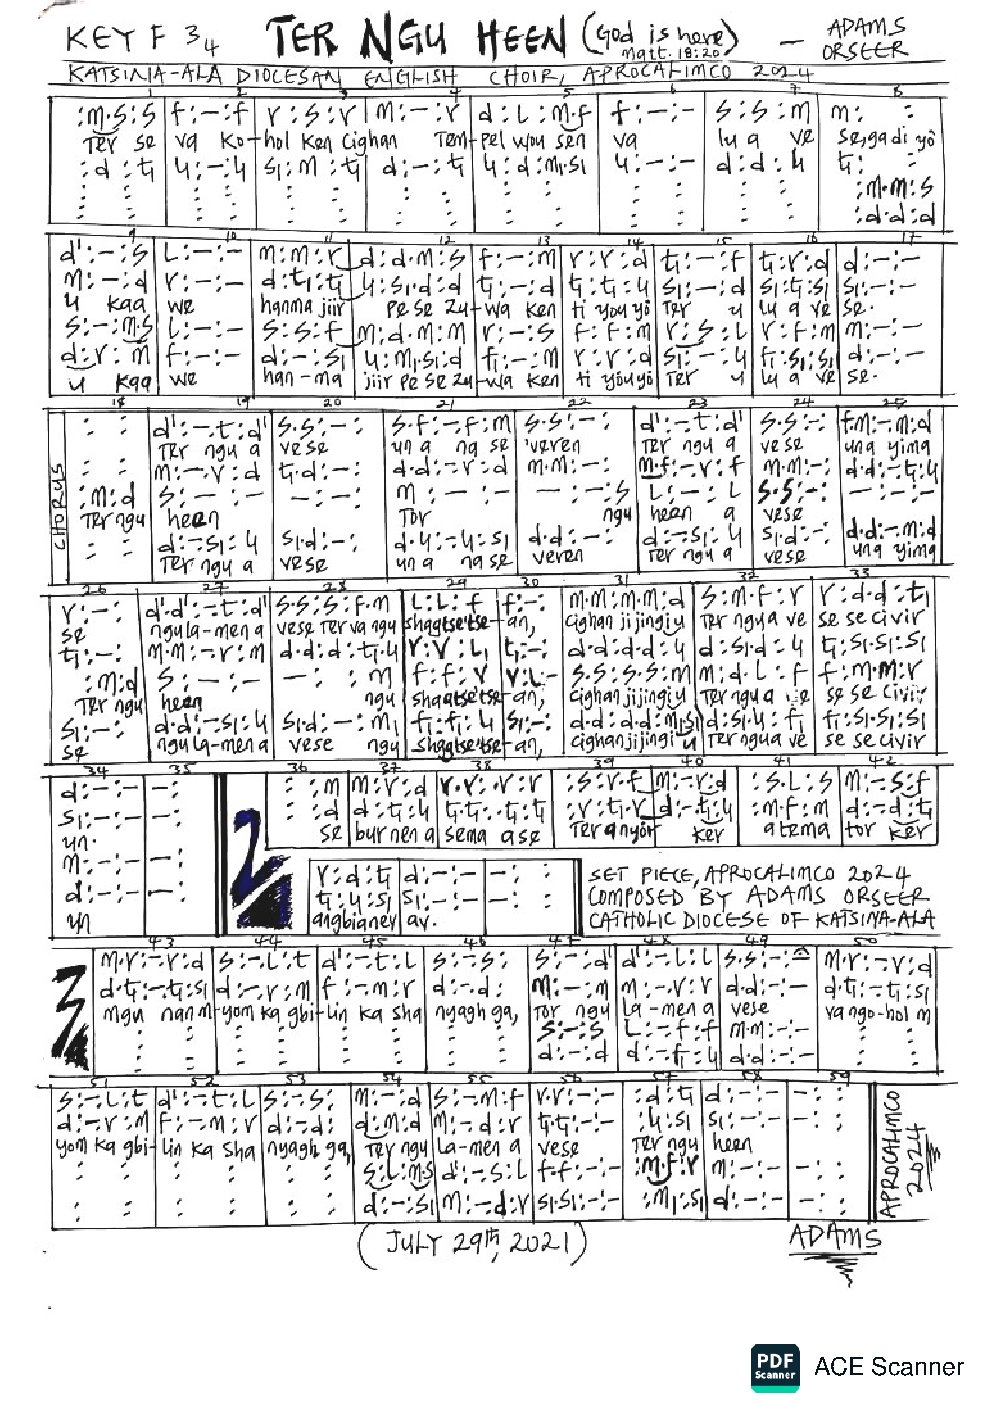 KEY F 3/4 TER NGU HEEN (God is here) Matt. 18:20 – ADAMS ORSEER
KATSINA-ALA DIOCESAN ENGLISH CHOIR, APROCALIMCO 2024
1 2 3 4 5 6 7 8
:m.s:s f:-:f r:s:r m:-:r d:l:m.f f:-:- s:s:m m: :
Ter se va Ko-hol ken cighan Tem-pel wou sen va lu a ve se, ga di yô
:d:t₁ l₁:-:l₁ s₁:m:t₁ d:-:t₁ l₁:d:m₁.s₁ l₁:-:- d:d:l₁ t₁: :
:m.m:s
:d.d:d
9 10 11 12 13 14 15 16 17
d':-:s l:-:- m:m:r d:d.m:s f:-:m r:r:d t₁:-:f t₁:r:d d:-:-
m:-:d r:-:- d:t₁:t₁ l₁:s₁.d:d t₁:-:t₁ t₁:t₁:l₁ s₁:-:d s₁:t₁:s₁ s₁:-:-
u kaa we hanma jiir pe se zu-wa ken ti you yô Ter u lu a ve se.
s:-:m.s l:-:- s:s:f m:d.m:m r:-:s f:f:m r:s:l r:f:m m:-:-
d:r:m f:-:- d:-:s₁ l₁:m₁.s₁:d f₁:-:m r:r:d s₁:-:l₁ f₁:s₁:s₁ d:-:-
u kaa we han-ma jiir pe se zu-wa ken ti you yô Ter u lu a ve se.
18 19 20 21 22 23 24 25
CHORUS
: : d':-.t:d' s.s:-: s.f:-.f:m s.s:-: d':-.t:d' s.s:-: f.m:-.m:d
Ter ngu a vese un a na se 'veren Ter ngu a vese una yima
: : m:-.r:d t₁.d:-: d.d:-.r:d m.m:-: m.f:-.r:f m.m:-: d.d:-.t₁:l₁
:m:d s:-:- -:-: m:-:- -:-:s l:-:l s.s:-: : :
Ter ngu heen Tor ngu heen a vese
: : d:-.s₁:l₁ s₁.d:-: d.l₁:-.l₁:s₁ d.d:-: d:-.s₁:l₁ s₁.d:-: d.d:-.m:d
Ter ngu a vese un a na se veren Ter ngu a vese una yima
26 27 28 29 30 31 32 33
r:-: d'.d':-.t:d' s.s:s:f.m l:l:f f:-: m.m:m.m:d s:m.f:r r:d.d:t₁
se ngu la-men a vese Ter va ngu shaatse'tse-an, cighan jijingi u Ter ngu a ve se se civir
t₁:-: m.m:-.r:m d.d:d:t₁.l₁ r:r:l₁ t₁:-: d.d:d.d:l₁ d:s₁.d:l₁ t₁:s₁.s₁:s₁
:m:d s:-:- -: :m f:f:r r:l:- s.s:s.s:m m:d.l:f f:m.m:r
Ter ngu heen ngu shaatse'tse-an, cighan jijingi u Ter ngu a ve se se civir
s₁:-: d.d:-.s₁:l₁ s₁.d:-:m₁ f₁:f₁:l₁ s₁:-: d.d:d.d:m₁.s₁ d:s₁.l₁:f₁ f₁:s₁.s₁:s₁
se ngu la-men a vese ngu shaatse'tse-an, cighan jijingi u Ter ngu a ve se se civir
34 35 36 37 38 39 40 41 42
d:-:- -: : : :m m:r:d r.r:r:r :s:r.f m:-.r:d :s.l:s m:-:s.f
s₁:-:- -: : : :d d:t₁:l₁ t₁.t₁:t₁:t₁ :r:t₁.r d:-.t₁:l₁ :m.f:m d:-:d.t₁
un. se bur nen a sema a se Ter a nyôr ker a tema tor ker
m:-:- -: :
d:-:- -: :
un
2
r:d:t₁ d:-:- -: :
t₁:l₁:s₁ s₁:-:- -: :
angbianev av.
SET PIECE, APROCALIMCO 2024
COMPOSED BY ADAMS ORSEER
CATHOLIC DIOCESE OF KATSINA-ALA
43 44 45 46 47 48 49 50
3
m.r:-.r:d s:-.l:t d':-.t:l s:-:s: s:-:d' d':-.l:l s.s:-:- m.r:-.r:d
d.t₁:-.t₁:s₁ d:-.r:m f:-.m:r d:-:d: m:-:m m:-.r:r d.d:-:- d.t₁:-.t₁:s₁
mgu nan m-yom ka gbi-lin ka sha nyagh ga, Tor ngu la-men a vese va ngo-hol m
s:-:s l:-.f:f m.m:-:-
d:-:d d:-.f₁:l₁ d.d:-:-
51 52 53 54 55 56 57 58 59
s:-.l:t d':-.t:l s:-:s: m:-:d s:-.m:f r.r:-:- :d:t₁ d:-:- -: :
d:-.r:m f:-.m:r d:-:d: d:m:d m:-.d:r t₁.t₁:-:- :l₁:s₁ s₁:-:- -: :
yom ka gbi-lin ka sha nyagh ga, Ter ngu la-men a vese Ter ngu heen
s:l:m.s d':-.s:l f.f:-:- :m.f:r m:-:- -: :
d:-:s₁ m:-.d:r s₁.s₁:-:- :m₁:s₁ d:-:- -: :
APROCALIMCO 2024
(JULY 29th, 2021)
ADAMS
PDF Scanner ACE Scanner